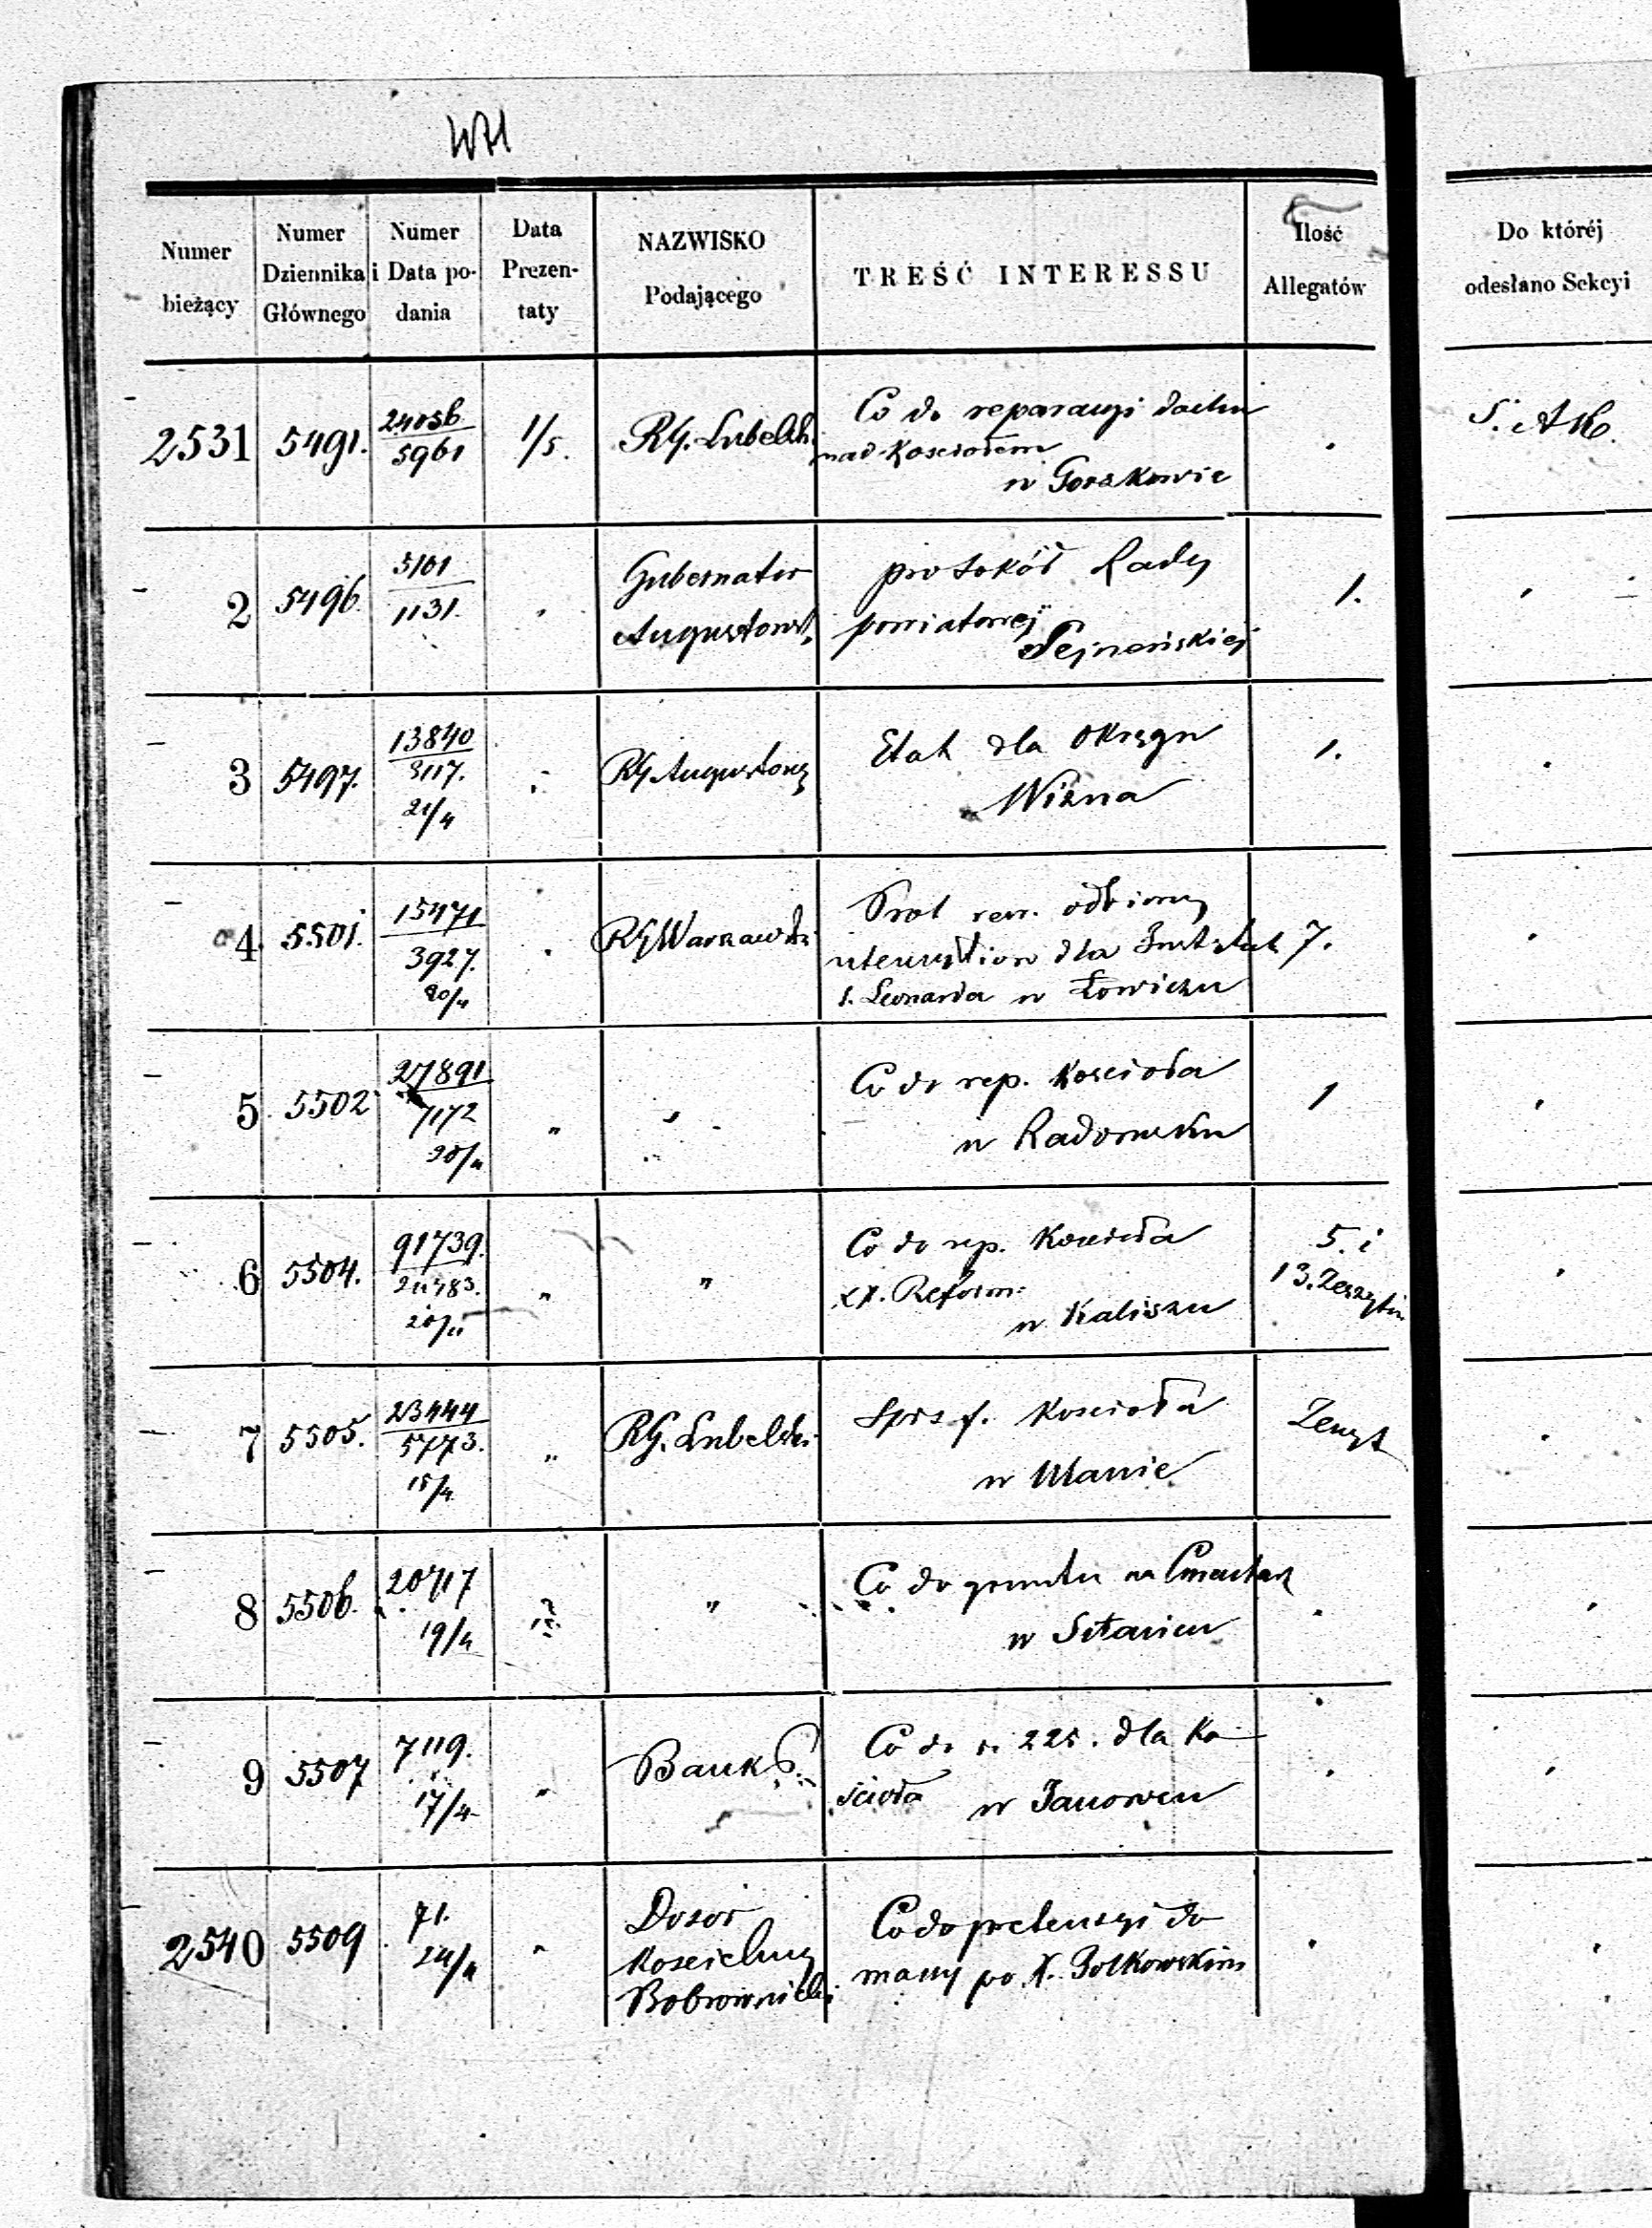 Numer bieżący
Numer Dziennika Głównego
Numer i Data podania
Data Prezentaty
NAZWISKO Podającego
TREŚĆ INTERESSU
Ilość Allegatów
Do któréj odesłano Sekcyi
2531 5491. 24056 1/5. RG. Lubelsk. Co do reparacyi dachu S. A
5961 nad Kosciołem
w Gorzkowie
2 5496. 5101 Gubernator protokół Rady 1.
1131. Augustowsk. powiatowej
Sejneńskiej
3 5497. 13840 RG Augustows Etat dla Okręgu 1.
3117. Wizna
21/4
4 5501. 15471 RG Warszawski Prot rew. odbiorczy 7.
3927. utensyliow dla Instytut
20/4 S. Leonarda w Łowiczu
5 5502 27891 „ „ Co do rep. Kościoła 1
7172 w Radomsku
20/4
6 5504. 91739. „ „ Co do rep. Kościoła 5. i
XX. Reform. 13. Zeszytów
w Kaliszu
7 5505. 23444 „ RG. Lubelski Spis f. Kościoła Zeszyt
5773. w Ulanie
15/4
8 5506. 20717 „ Co do gruntu na Cmentarz
19/4 w Sitańcu
9 5507 7119. „ Bank P. Co do 225. dla Ko
17/4 ścioła w Janowcu
2540 5509 71. „ Dozor Co do pretensyi do
24/4 Kościelny massy po X.
Bobrownicki